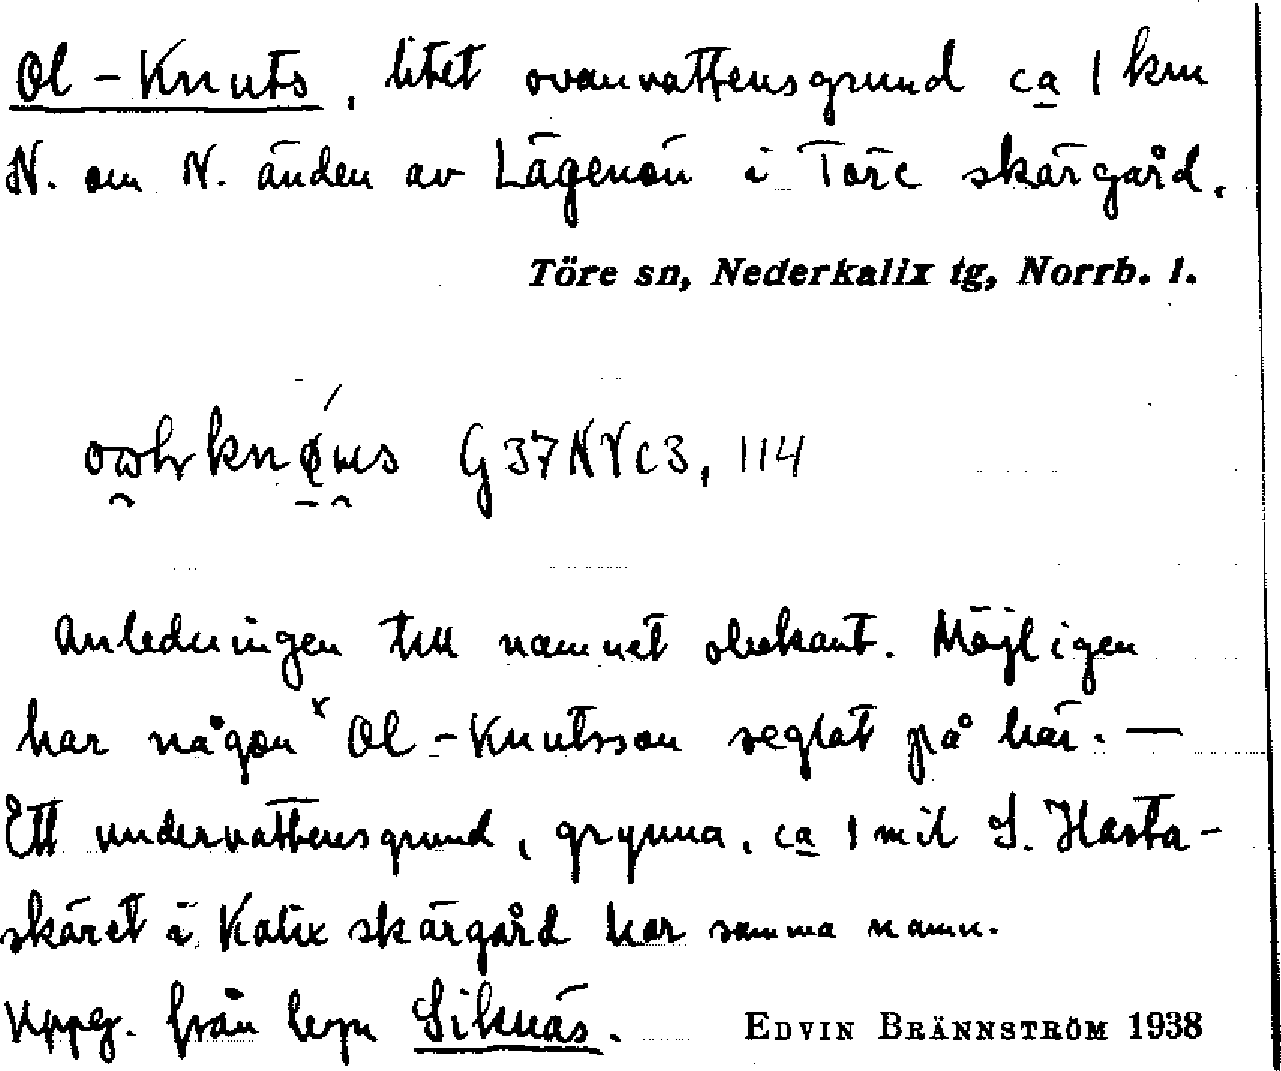 Ol-Knuts, litet ovanvattensgrund ca 1 km
N. om N. änden av Lägenön i Töre skärgård.
Töre sn, Nederkalix tg, Norrb. l.
G37NVc3, 114
Anledningen till namnet obekant. Möjligen
har någon x Ol-Knutsson seglat på här. —
Ett undervattensgrund, grynna, ca 1 mil S. Hasta-
skäret i Kalix skärgård har samma namn.
Uppg. från byn Siknäs.
EDVIN BRÄNNSTRÖM 1938